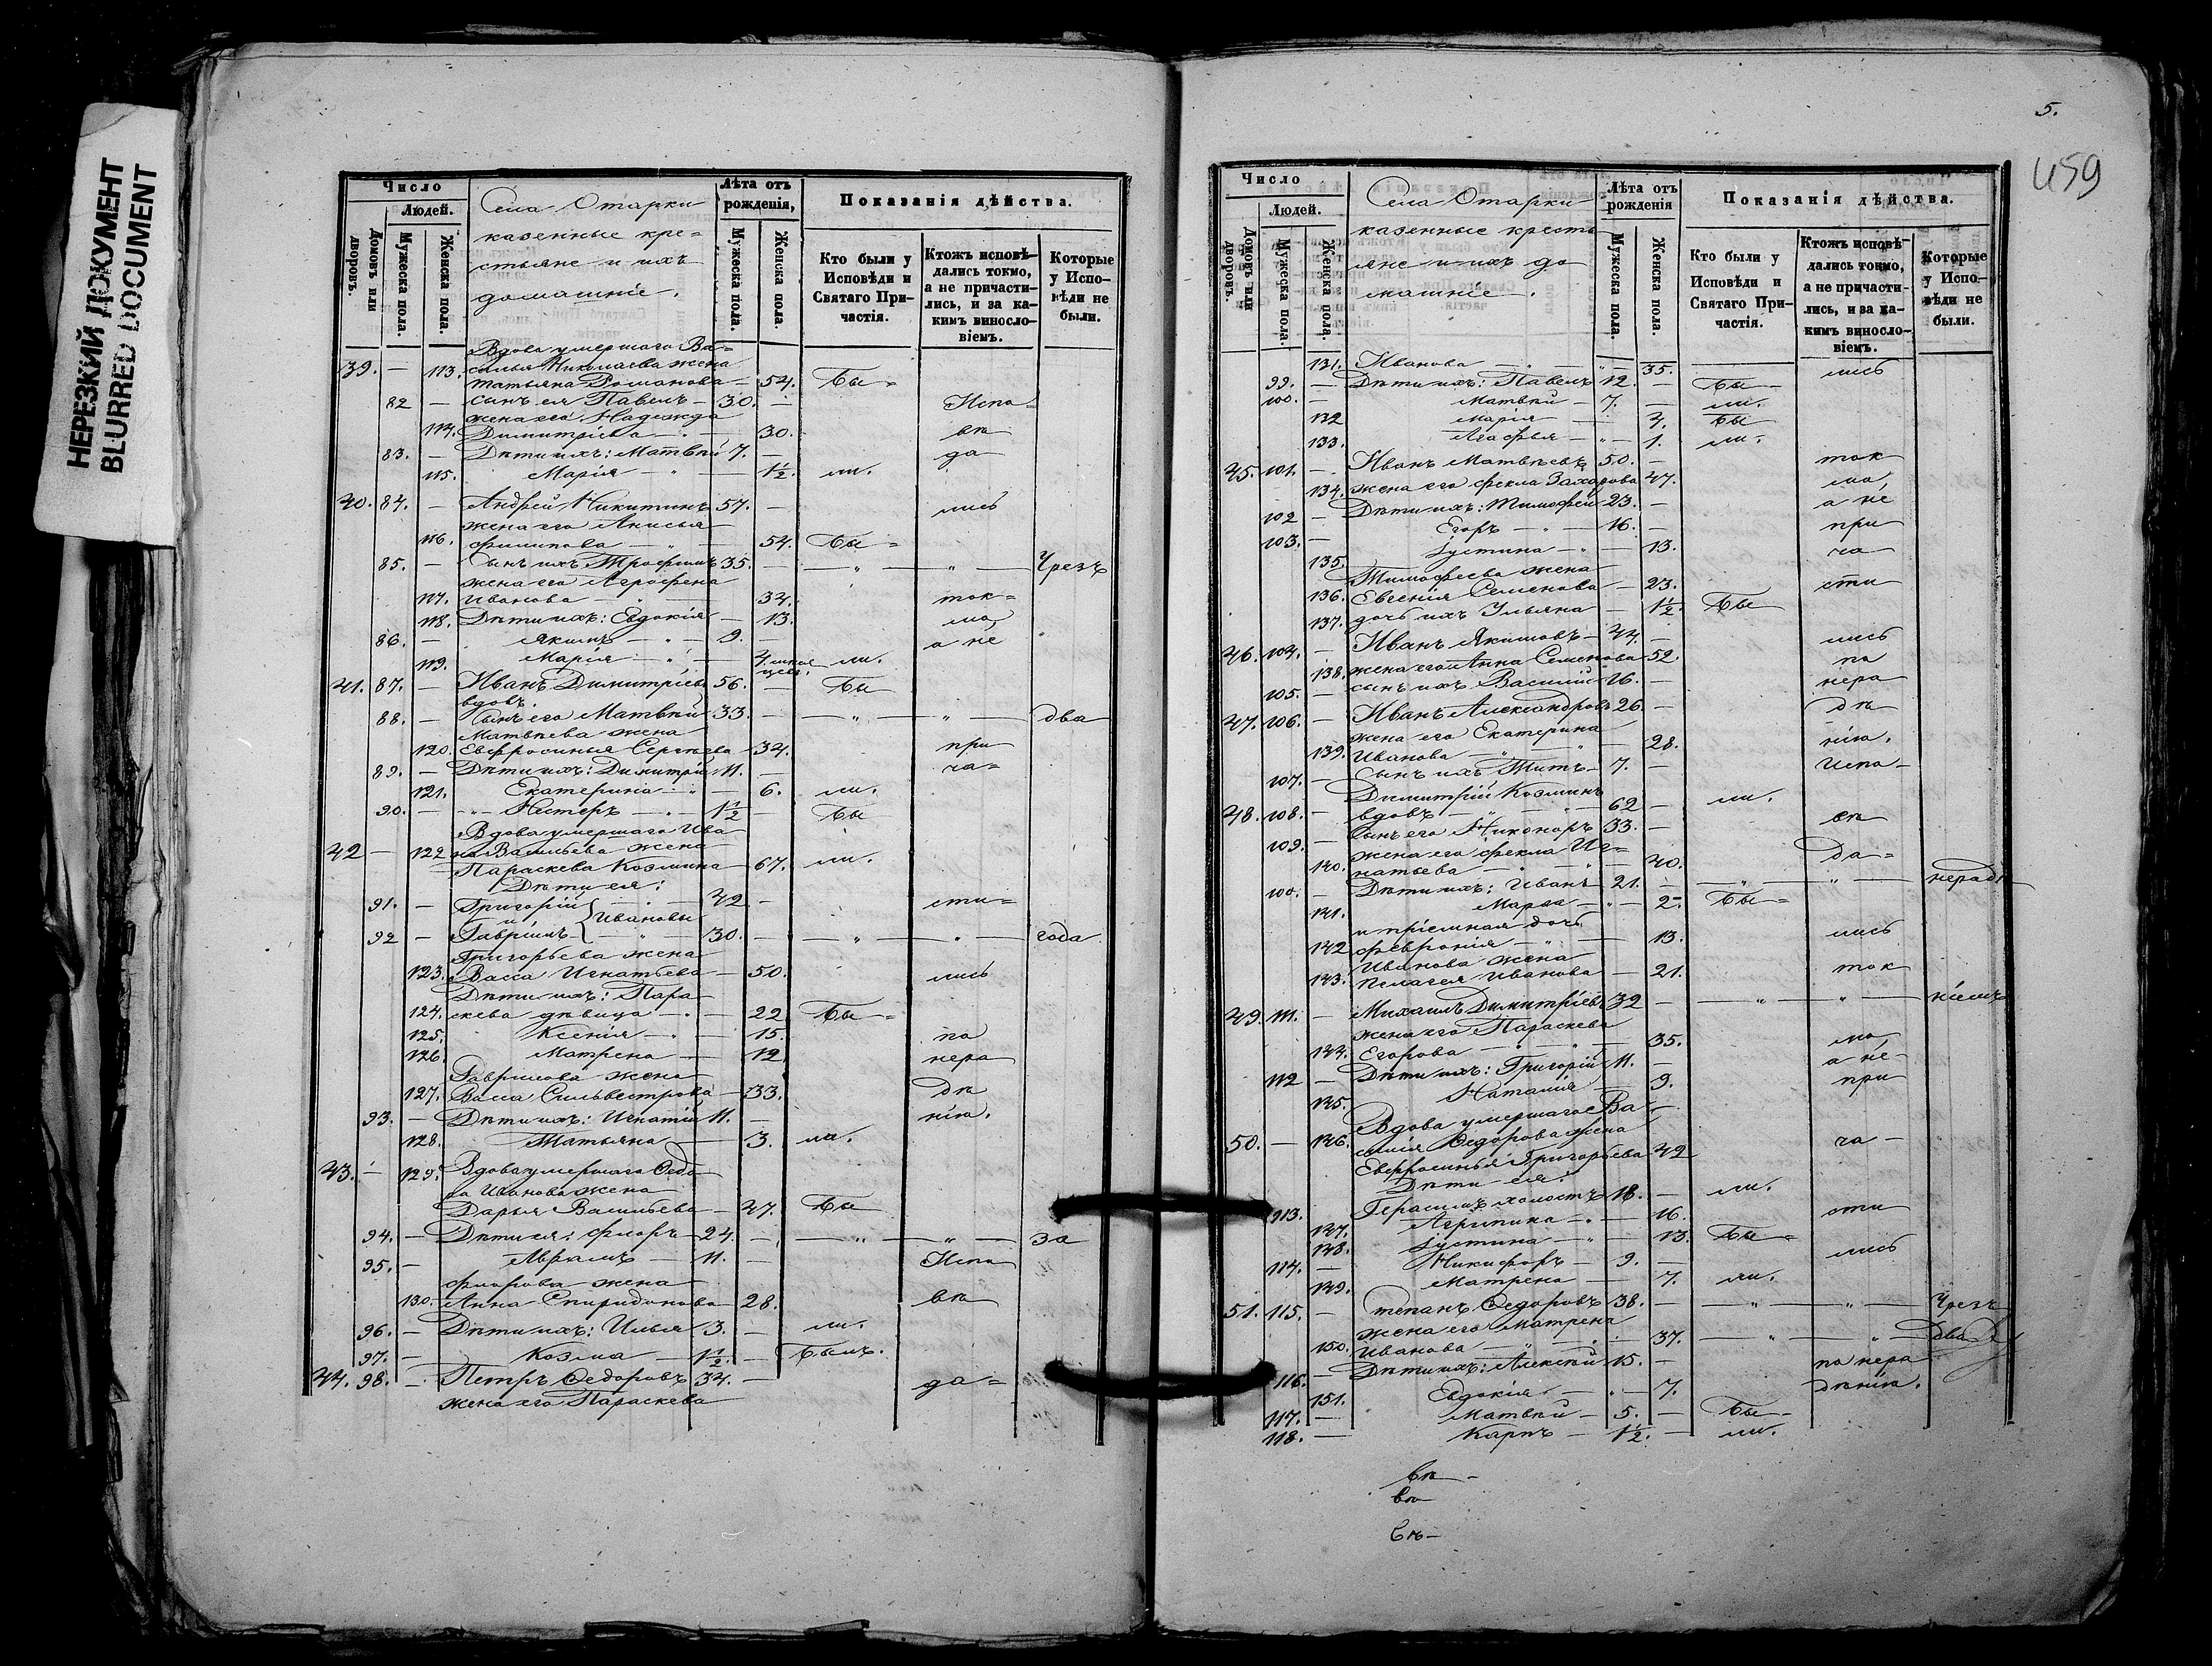 НЕРЕЗКИЙ ДОКУМЕНТ
BLURRED DOCUMENT
Число
Людей.
Домовъ или дворовъ.
Мужеска пола.
Женска пола.
Села Отарки
казенные кре=
стьяне и ихъ
домашніе.
Лѣта отъ рожденія,
Мужеска пола.
Женска пола.
Показанія дѣйства.
Кто были у Исповѣди и Святаго Причастія.
Ктожъ исповѣдались токмо, а не причастились, и за какимъ винословіемъ.
Которые у Исповѣди не были.
Вдова умершаго Ва=
39. — 113. силья Николаева жена
Татьяна Романова — 54. Бы=
82 — сынъ ея Павелъ — 30. — Испо=
жена его Надежда
114. Димитріева — " — 30. вѣ
83. — Дѣти ихъ: Матвѣй 7. — да
115. Марія — " — 1½. ли.
40. 84. — Андрей Никитинъ 57. — лись
жена его Анисья
116. Филипова — " — 54. Бы=
85. — Сынъ ихъ Трофимъ 35. — " — " — Чрезъ
жена его Агрофена
117. Иванова — " — 34. ток=
118. Дѣти ихъ: Евдокія — 13. мо
86. — Якимъ — " — 9. — а не
119. Марія — " — 4 мѣсяцевъ. ли.
41. 87. — Иванъ Димитріевъ 56. — Бы
вдовъ.
88. — Сынъ его Матвѣй 33. — " — " — два
Матвѣева жена
120. Евфросинья Сергѣева — 34. при
89. — Дѣти ихъ: Димитрій 11. — ча=
121. Екатерина " — 6. ли.
90. — Нестеръ — " — 1½ — Бы
Вдова умершаго Ива
42 — 122 на Васильева жена
Параскева Козмина — 67. ли.
Дѣти ея:
91. — Григорій — " — 42 — сти=
и Ивановы
92 — Гаврилъ — " — 30. — " — " — года
Григорьева жена
123. Васса Игнатьева — 50. лись
Дѣти ихъ: Пара
124. скева дѣвица — " — 22 Бы=
125. Ксенія — " — 15. по
126. Матрена — 12 нера
Гаврилова жена
127. Васса Сильвестрова — 33. дѣ
93. — Дѣти ихъ: Игнатій 11. — нію.
128. Татьяна — 3. ли.
43. — 129. Вдова умершаго Ѳедо
ра Иванова жена
Дарья Васильева — 47. Бы
94. — Дѣти ея: Флоръ — 24. — " — " — за
95. — Абрамъ — 11. — Испо
Флорова жена
130. Анна Спиридонова — 28. вѣ
96. — Дѣти ихъ: Илья 3. — ли.
97. — Козма — 1½. — Былъ.
44. 98. — Петръ Ѳедоровъ 34. — да=
жена его Параскева
5.
459
Число
Людей.
Домовъ или дворовъ.
Мужеска пола.
Женска пола.
Села Отарки
казенные кресть
яне и ихъ до
машніе.
Лѣта отъ рожденія
Мужеска пола.
Женска пола.
Показанія дѣйства.
Кто были у Исповѣди и Святаго Причастія.
Ктожъ исповѣдались токмо, а не причастились, и за какимъ винословіемъ.
Которые у Исповѣди не были.
131. Иванова — " — 35. лись
99. — Дѣти ихъ: Павелъ 12. — Бы —
100. — Матвѣй — 7. — ли.
132 Марія — 4. Бы
133. Агафья — " — 1. ли.
45. 101. — Иванъ Матвѣевъ 50. — ток
134. жена его Фекла Захарова 47. мо,
102 — Дѣти ихъ: Тимофей 23. — а не
103. — Егоръ — " — 16. — при
135. Іустина — " — 13. ча
Тимофеева жена
136. Евгенія Семенова — 23. сти
137. дочь ихъ Ульяна — 1½. Бы
46. 104. — Иванъ Якимовъ — 44. — лись
138. жена его Анна Семенова 52. по
105. — сынъ ихъ Василій 16. — нера
47. 106. — Иванъ Александровъ 26. — дѣ
жена его Екатерина
139. Иванова — " — 28. нію.
107. — Сынъ ихъ Титъ — 7. — Испо—
Димитрій Козминъ
48. 108. — вдовъ — " — 62 — ли.
109. — Сынъ его Никоноръ 33. — вѣ
140. жена его Фекла Иг=
натьева — " — 40. да=
100. — Дѣти ихъ: Иванъ 21. — " — " — нерадѣ
141. Марѳа — " — 2. Бы=
и пріемная дочь
142 Февронія — " — 13. лись
Иванова жена
143. Пелагея Иванова — 21. ток
49. 111. — Михаилъ Димитріевъ 32 — " — " — ніемъ
жена его Параскева
144. Егорова — " — 35. мо
112 — Дѣти ихъ: Григорій 11. — а не—
145. Наталія — 9. при
Вдова умершаго Ва—
50. — 146. силія Ѳедорова жена
Евфросинья Григорьева 42 ча —
Дѣти ея:
113. — Герасимъ холостъ 18. — ли.
147. Агрипина — " — 16. сти
148. Іустина — " — 13. Бы=
114. — Никифоръ — 9. — лись
149. Матрена — 7. ли.
51. 115. — тепанъ Ѳедоровъ 38. — " — " — Чрезъ
жена его Матрена
150. Иванова — " — 37. — " — " — Два
116. — Дѣти ихъ: Алексѣй 15. — по нера
151. Евдокія — " — 7. дѣнію.
117. — Матвѣй — 5. — Бы—
118. — Карпъ — 1½. — ли.
вѣ —
вѣ
вѣ—